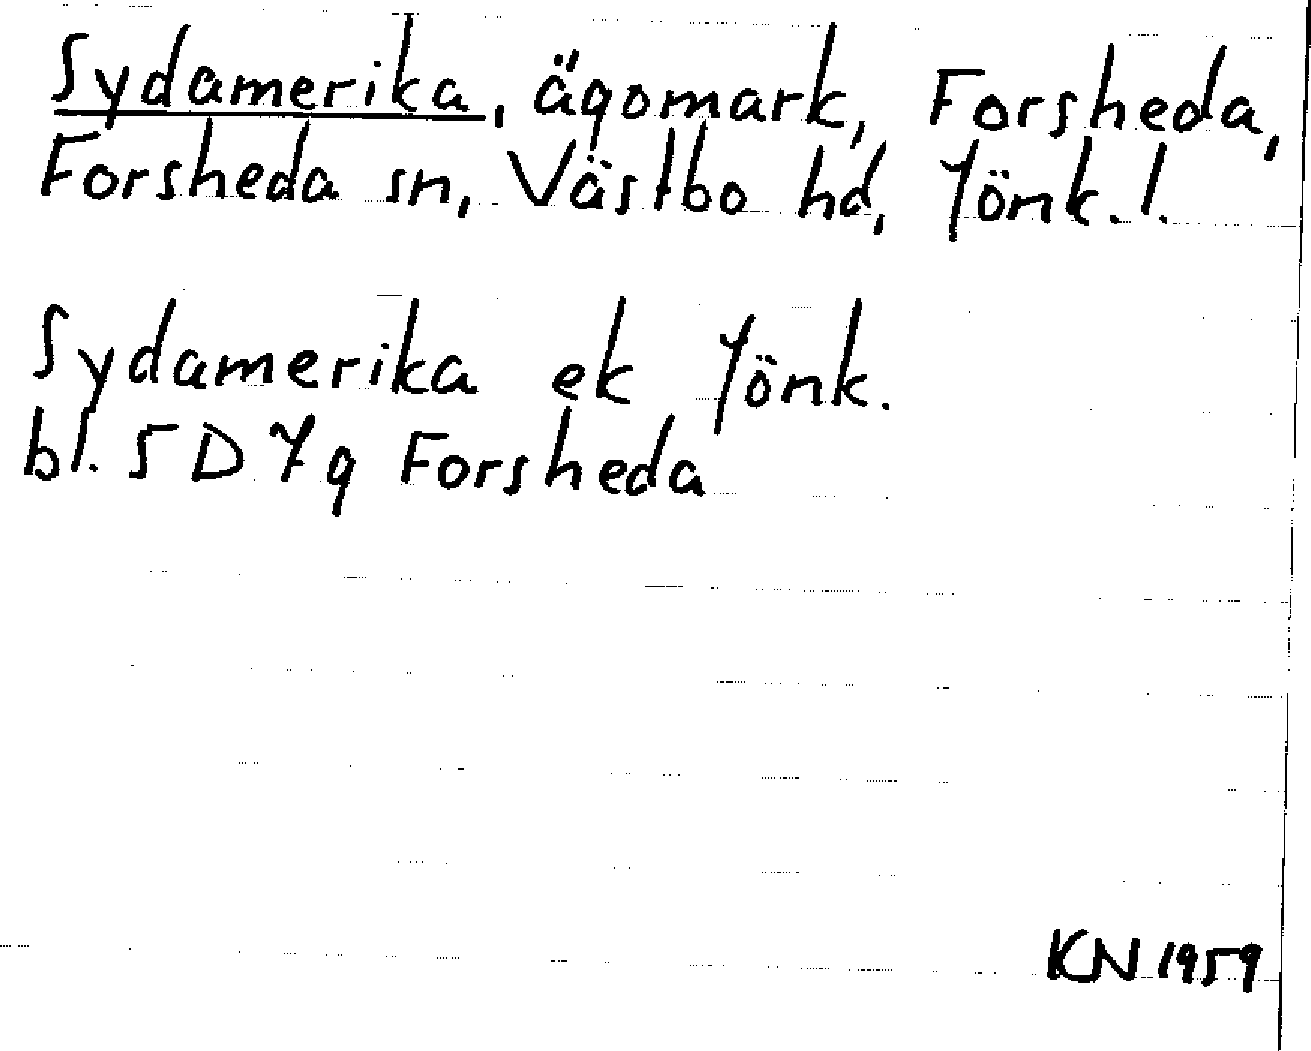 Sydamerika, ägomark, Forsheda,
Forsheda sn, Västbo hd, Jönk. l.
Sydamerika ek Jönk.
bl. 5 D 7g Forsheda
KN 1959